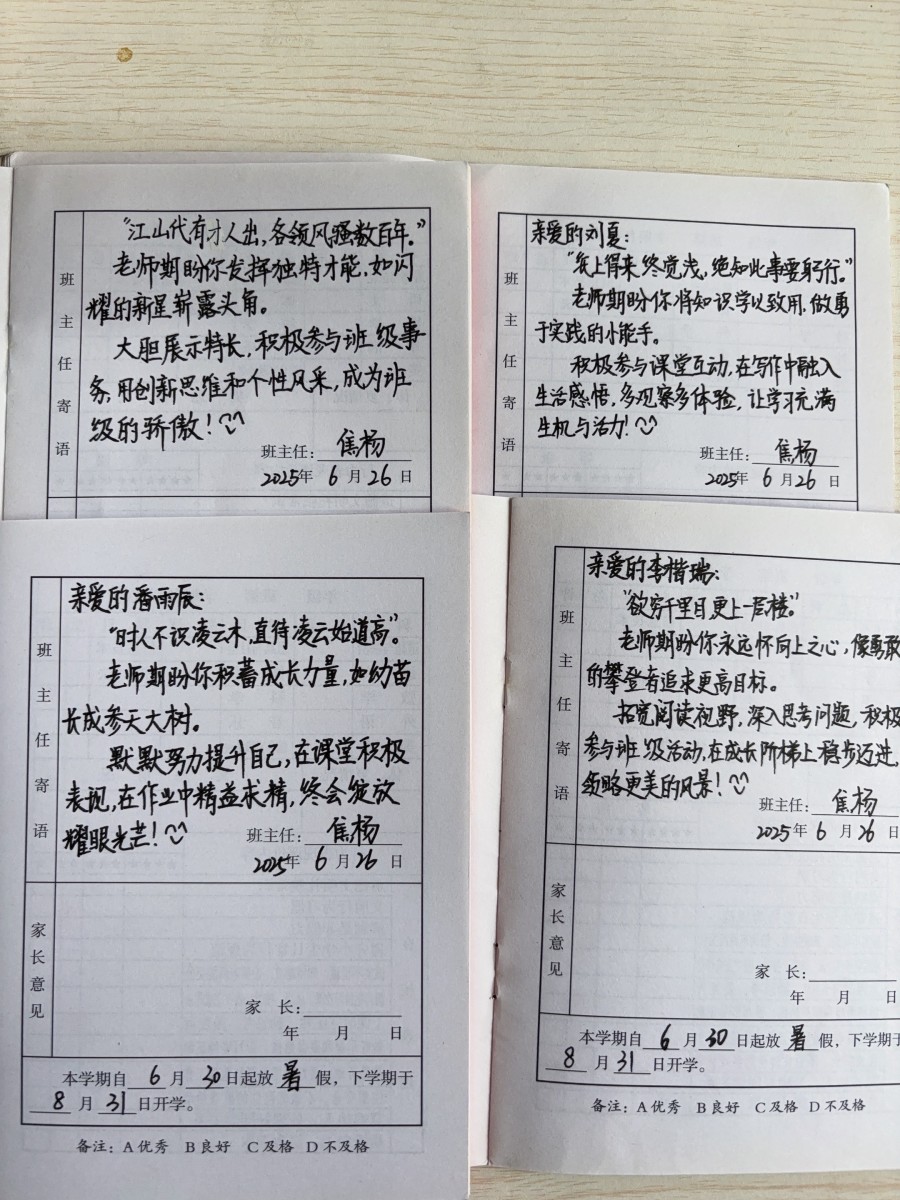 班主任寄语
“江山代有才人出，各领风骚数百年。”
老师期盼你发挥独特才能，如闪
耀的新星崭露头角。
大胆展示特长，积极参与班级事
务，用创新思维和个性风采，成为班
级的骄傲！
班主任：焦杨
2025年 6 月 26 日
班主任寄语
亲爱的刘夏：
“纸上得来终觉浅，绝知此事要躬行。”
老师期盼你将知识学以致用，做勇
于实践的小能手。
积极参与课堂互动，在写作中融入
生活感悟，多观察多体验，让学习充满
生机与活力！
班主任：焦杨
2025年 6 月 26 日
班主任寄语
亲爱的潘雨辰：
“时人不识凌云木，直待凌云始道高”。
老师期盼你积蓄成长力量，如幼苗
长成参天大树。
默默努力提升自己，在课堂积极
表现，在作业中精益求精，终会绽放
耀眼光芒！
班主任：焦杨
2025年 6 月 26 日
家长意见
家 长：
年 月 日
本学期自 6 月 30 日起放 暑 假，下学期于
8 月 31 日开学。
备注：A优秀 B良好 C及格 D不及格
班主任寄语
亲爱的李楷瑞：
“欲穷千里目，更上一层楼。”
老师期盼你永远怀向上之心，像勇敢
的攀登者追求更高目标。
拓宽阅读视野，深入思考问题，积极
参与班级活动，在成长阶梯上稳步迈进，
领略更美的风景！
班主任：焦杨
2025年 6 月 26 日
家长意见
家 长：
年 月 日
本学期自 6 月 30 日起放 暑 假，下学期于
8 月 31 日开学。
备注：A优秀 B良好 C及格 D不及格